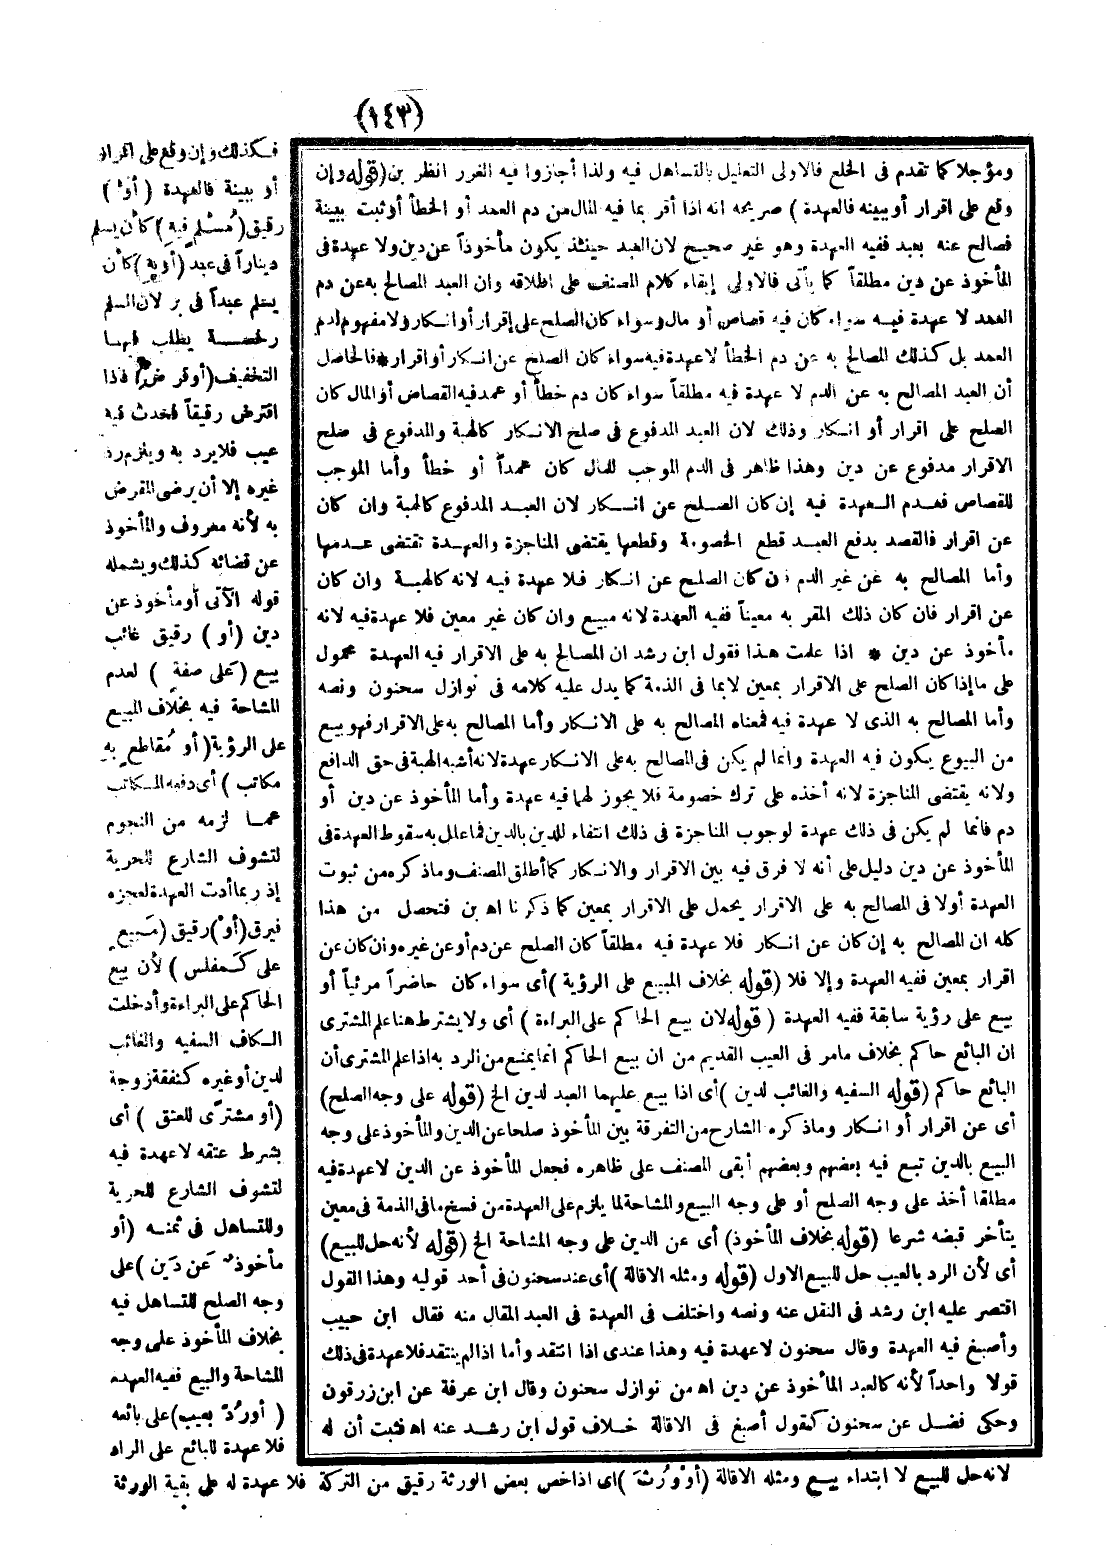 (١٤٣)
ومؤجلا كما تقدم فى الخلع فالاولى التعليل بالتساهل فيه ولذا أجازوا فيه الغرر انظر بن (قوله وإن
وقع على اقرار أو ببينه فالعهدة ) صريحه انه اذا أقر بما فيه المال من دم العمد أو الخطأ أو ثبت ببينة
فصالح عنه بعبد ففيه العهدة وهو غير صحيح لان العبد حينئذ يكون مأخوذاً عن دين ولا عهدة فى
المأخوذ عن دين مطلقاً كما يأتى فالاولى إبقاء كلام المصنف على اطلاقه وان العبد المصالح به عن دم
العمد لا عهدة فيه سواء كان فيه قصاص أو مال وسواء كان الصلح على إقرار أو انكار ولا مفهوم لدم
العمد بل كذلك المصالح به عن دم الخطأ لا عهدة فيه سواء كان الصلح عن انكار أو اقرار * فالحاصل
أن العبد المصالح به عن الدم لا عهدة فيه مطلقاً سواء كان دم خطأ أو عمد فيه القصاص أو المال كان
الصلح على اقرار أو انكار وذلك لان العبد المدفوع فى صلح الانكار كالهبة والمدفوع فى صلح
الاقرار مدفوع عن دين وهذا ظاهر فى الدم الموجب للمال كان عمداً أو خطأ وأما الموجب
للقصاص فعدم العهدة فيه إن كان الصلح عن انكار لان العبد المدفوع كالهبة وان كان
عن اقرار فالقصد بدفع العبد قطع الخصومة وقطعها يقتضى المناجزة والعهدة تقتضى عدمها
وأما المصالح به عن غير الدم فان كان الصلح عن انكار فلا عهدة فيه لانه كالهبة وان كان
عن اقرار فان كان ذلك المقر به معيناً ففيه العهدة لانه مبيع وان كان غير معين فلا عهدة فيه لانه
مأخوذ عن دين * اذا علمت هذا فقول ابن رشد ان المصالح به على الاقرار فيه العهدة محمول
على ما إذا كان الصلح على الاقرار بمعين لا بما فى الذمة كما يدل عليه كلامه فى نوازل سحنون ونصه
وأما المصالح به الذى لا عهدة فيه فمعناه المصالح به على الانكار وأما المصالح به على الاقرار فهو بيع
من البيوع يكون فيه العهدة وانما لم يكن فى المصالح به على الانكار عهدة لانه أشبه الهبة فى حق الدافع
ولانه يقتضى المناجزة لانه أخذه على ترك خصومة فلا يجوز لهما فيه عهدة وأما المأخوذ عن دين أو
دم فانما لم يكن فى ذلك عهدة لوجوب المناجزة فى ذلك انتفاء للدين بالدين فما علل به سقوط العهدة فى
المأخوذ عن دين دليل على أنه لا فرق فيه بين الاقرار والانكار كما أطلق المصنف وما ذكره من ثبوت
العهدة أولا فى المصالح به على الاقرار يحمل على الاقرار بمعين كما ذكرنا اه بن فتحصل من هذا
كله ان المصالح به إن كان عن انكار فلا عهدة فيه مطلقاً كان الصلح عن دم أو عن غيره وان كان عن
اقرار بمعين ففيه العهدة وإلا فلا (قوله بخلاف المبيع على الرؤية ) أى سواء كان حاضراً مرئياً أو
بيع على رؤية سابقة ففيه العهدة ( قوله لان بيع الحاكم على البراءة ) أى ولا يشترط هنا علم المشترى
ان البائع حاكم بخلاف مامر فى العيب القديم من ان بيع الحاكم انما يمنع من الرد به اذا علم المشترى أن
البائع حاكم (قوله السفيه والغائب لدين ) أى اذا بيع عليهما العبد لدين الخ (قوله على وجه الصلح)
أى عن اقرار أو انكار وما ذكره الشارح من التفرقة بين المأخوذ صلحا عن الدين والمأخوذ على وجه
البيع بالدين تبع فيه بعضهم وبعضهم أبقى المصنف على ظاهره فجعل المأخوذ عن الدين لا عهدة فيه
مطلقا أخذ على وجه الصلح أو على وجه البيع والمشاحة لما يلزم على العهدة من فسخ ما فى الذمة فى معين
يتأخر قبضه شرعا (قوله بخلاف المأخوذ) أى عن الدين على وجه المشاحة الخ (قوله لأنه حل للبيع)
أى لأن الرد بالعيب حل للبيع الاول (قوله ومثله الاقالة ) أى عند سحنون فى أحد قوليه وهذا القول
اقتصر عليه ابن رشد فى النقل عنه ونصه واختلف فى العهدة فى العبد المقال منه فقال ابن حبيب
وأصبغ فيه العهدة وقال سحنون لا عهدة فيه وهذا عندى اذا انتقد وأما اذا لم ينتقد فلا عهدة فى ذلك
قولا واحداً لأنه كالعبد المأخوذ عن دين اه من نوازل سحنون وقال ابن عرفة عن ابن زرقون
وحكى فضل عن سحنون كقول أصبغ فى الاقالة خلاف قول ابن رشد عنه اه فثبت أن له
فكذلك وإن وقع على اقرار
أو ببينة فالعهدة ( أو )
رقيق (مُسْلم فيه) كأن يسلم
ديناراً فى عبد (أو به) كأن
يسلم عبداً فى بر لان السلم
رخصة يطلب فيها
التخفيف (أو قرض) فاذا
اقترض رقيقاً فحدث فيه
عيب فلا يرد به ويلزم رد
غيره إلا أن يرضى المقرض
به لأنه معروف والمأخوذ
عن قضائه كذلك ويشمله
قوله الآتى أو مأخوذ عن
دين (أو ) رقيق غائب
بيع (على صفةٍ ) لعدم
المشاحة فيه بخلاف المبيع
على الرؤية ( أو مُقاطع به
مكاتب ) أى دفعه المكاتب
عما لزمه من النجوم
لتشوف الشارع للحرية
إذ ربما أدت العهدة لعجزه
فيرق (أو) رقيق (مَبيع
على كمفلس ) لأن بيع
الحاكم على البراءة وأدخلت
الكاف السفيه والغائب
لدين أو غيره كنفقة زوجة
(أو مشترًى للعتق ) أى
بشرط عتقه لا عهدة فيه
لتشوف الشارع للحرية
وللتساهل فى ثمنه (أو
مأخوذ عَن دَين ) على
وجه الصلح للتساهل فيه
بخلاف المأخوذ على وجه
المشاحة والبيع ففيه العهدة
( أو رُدّ بعيب) على بائعه
فلا عهدة للبائع على الراد
لانه حل للبيع لا ابتداء بيع ومثله الاقالة (أو وُرثَ ) اى اذا خص بعض الورثة رقيق من التركة فلا عهدة له على بقية الورثة